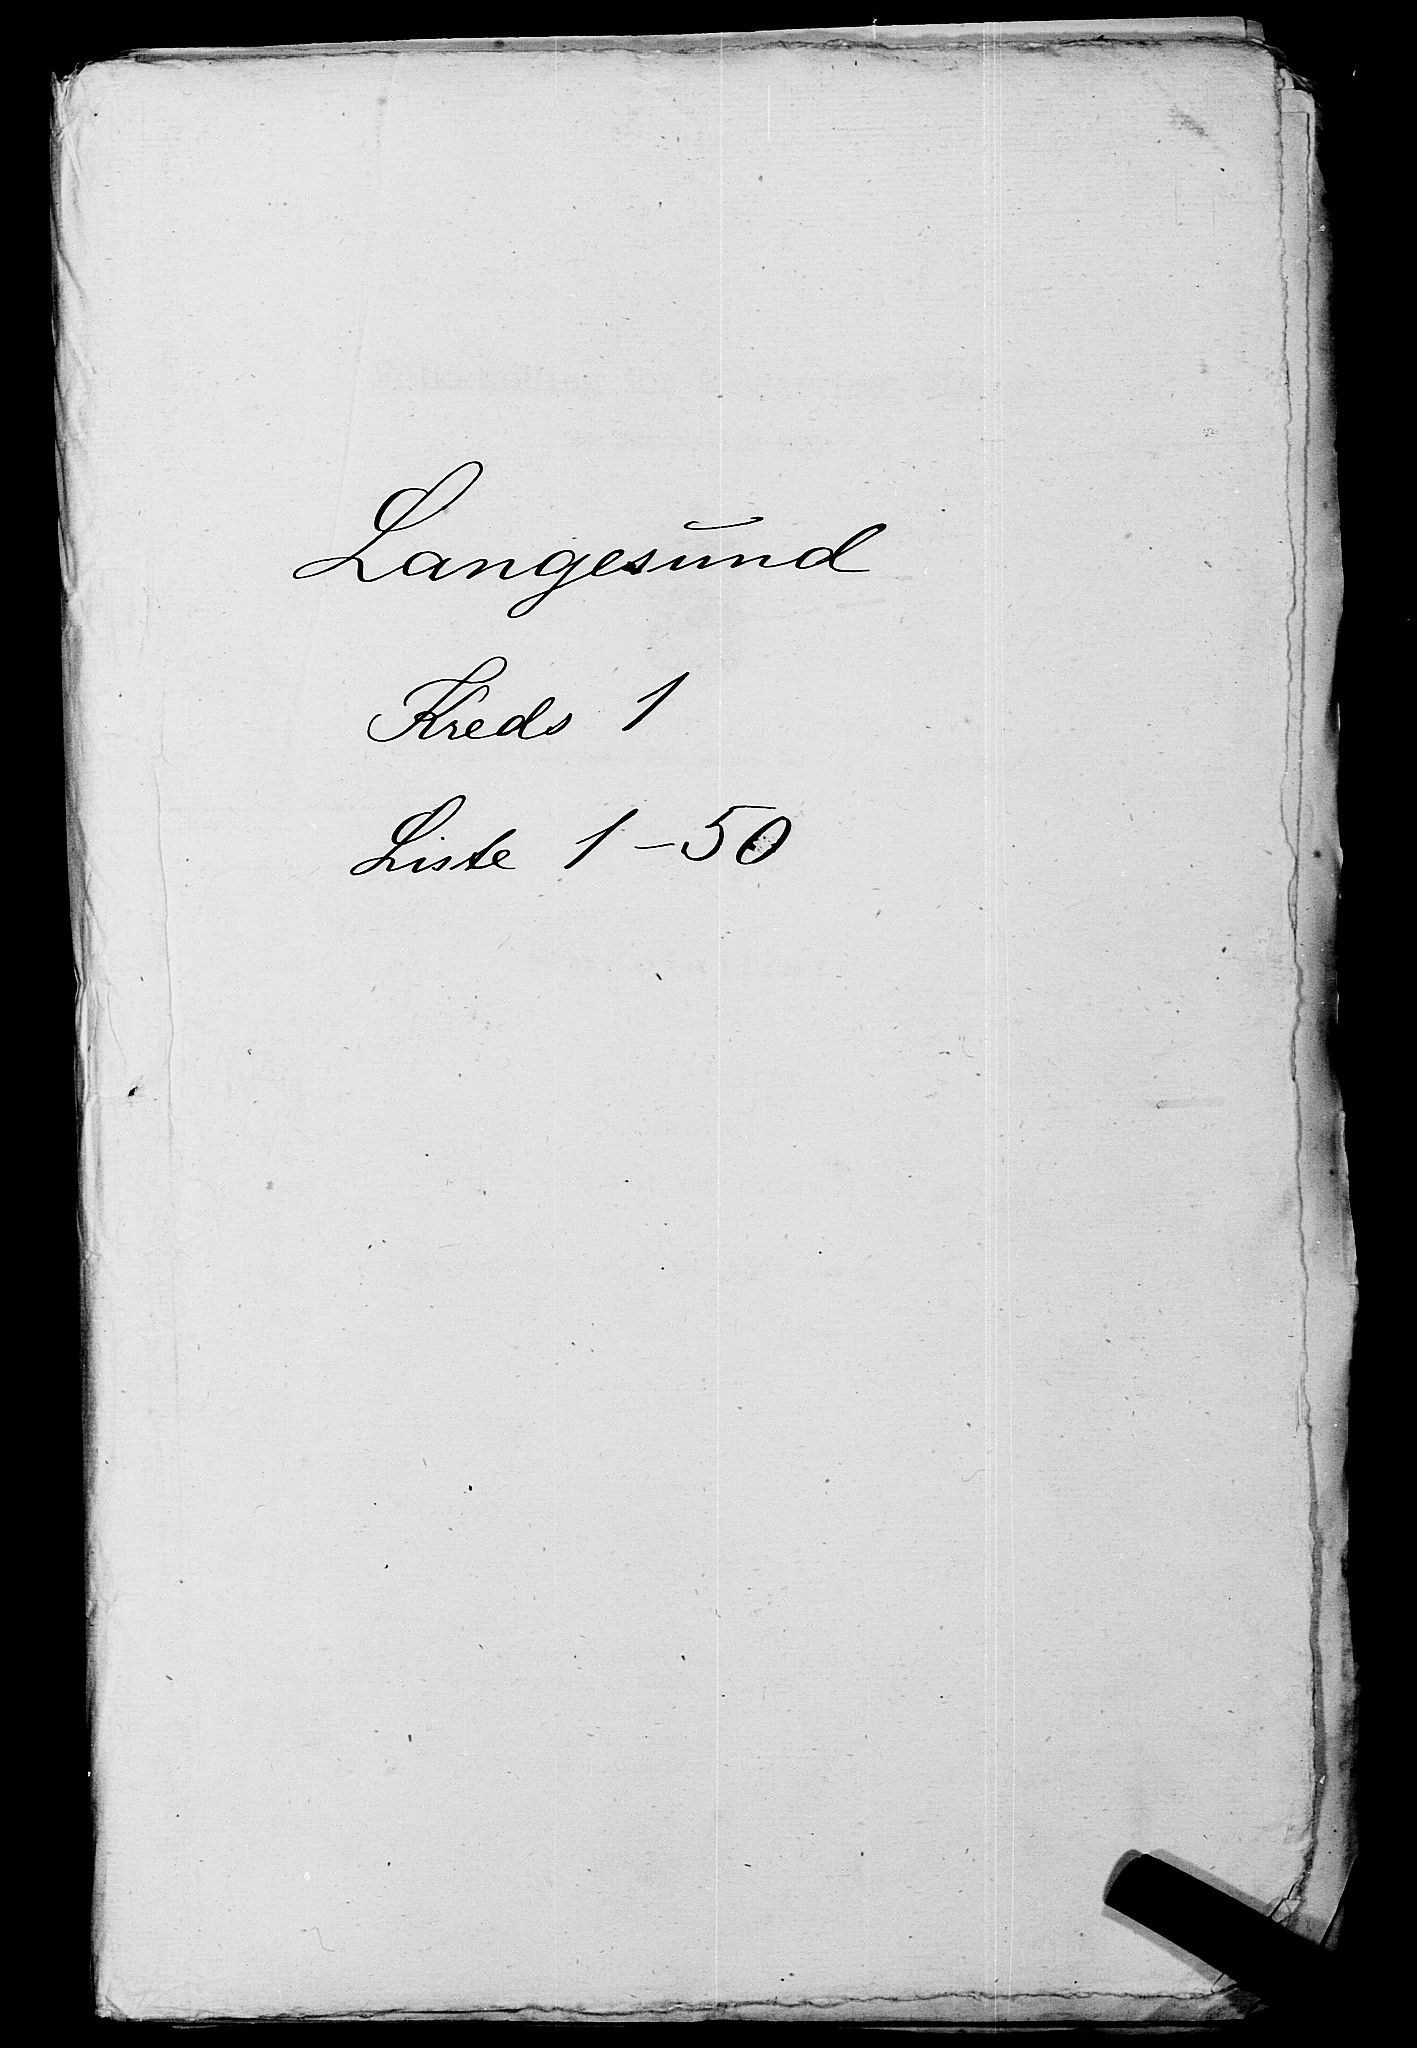 Langesund
Kreds 1
Liste 1-50